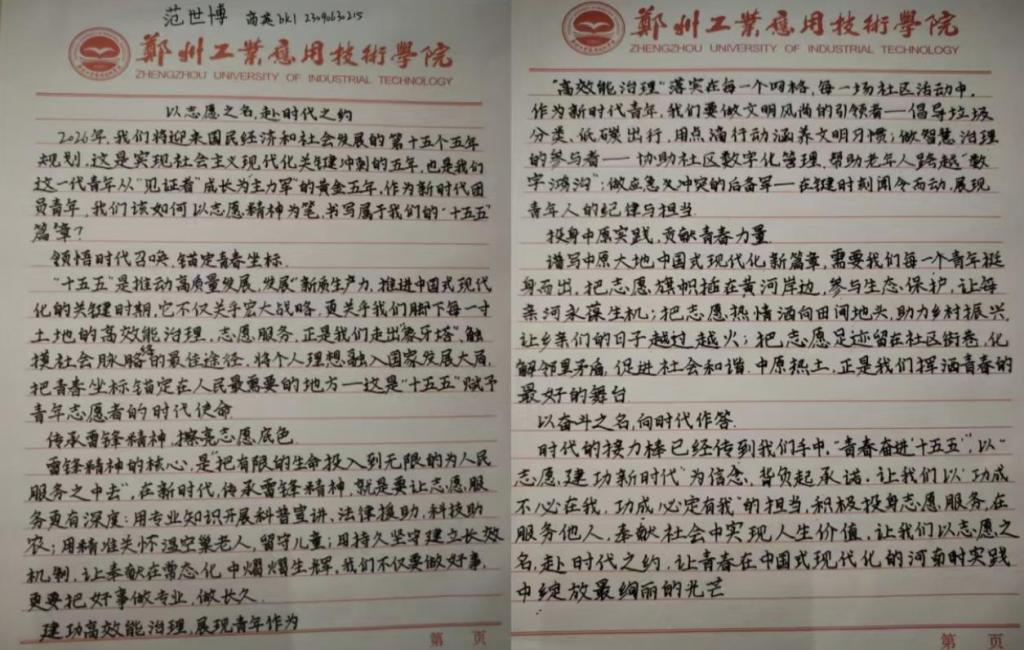 范世博 商英bk1 2309630215
鄭州工業應用技術學院
ZHENGZHOU UNIVERSITY OF INDUSTRIAL TECHNOLOGY
以志愿之名,赴时代之约
2026年,我们将迎来国民经济和社会发展的第十五个五年
规划,这是实现社会主义现代化关键冲刺的五年,也是我们
这一代青年从“见证者”成长为主力军”的黄金五年,作为新时代团
员青年,我们该如何以志愿精神为笔,书写属于我们的“十五五”
篇章?
领悟时代召唤,锚定青春坐标.
“十五五”是推动高质量发展,发展“新质生产力,推进中国式现代
化的关键时期,它不仅关乎宏大战略,更关乎我们脚下每一寸
土地的高效能治理,志愿服务,正是我们走出“象牙塔”,触
摸社会脉胳的最佳途径,将个人理想融入国家发展大局,
把青春坐标锚定在人民最需要的地方—这是“十五五”赋予
青年志愿者的时代使命
传承雷锋精神,擦亮志愿底色.
雷锋精神的核心,是“把有限的生命投入到无限的为人民
服务之中去”,在新时代,传承雷锋精神,就是要让志愿服
务更有深度:用专业知识开展科普宣讲、法律援助,科技助
农;用精准关怀温空巢老人,留守儿童;用持久坚守建立长效
机制,让奉献在常态化中熠熠生辉,我们不仅要做好事,
更要把好事做专业,做长久.
建功高效能治理,展现青年作为
第 页
鄭州工業應用技術學院
ZHENGZHOU UNIVERSITY OF INDUSTRIAL TECHNOLOGY
“高效能治理”落实在每一个网格,每一场社区活动中,
作为新时代青年,我们要做文明风尚的引领者—倡导垃圾
分类、低碳出行,用点滴行动涵养文明习惯;做智慧治理
的参与者—协助社区数字化管理,帮助老年人跨越“数
字鸿沟”;做应急冲突的后备军—在键时刻闻令而动,展现
青年人的纪律与担当.
投身中原实践,贡献青春力量.
谱写中原大地中国式现代化新篇章,需要我们每一个青年挺
身而出,把志愿旗帜插在黄河岸边,参与生态保护,让母
亲河永葆生机;把志愿热情洒向田间地头,助力乡村振兴,
让乡亲们的日子越过越火;把志愿足迹留在社区街巷,化
解邻里矛盾,促进社会和谐.中原热土,正是我们挥洒青春的
最好的舞台.
以奋斗之名,向时代作答.
时代的接力棒已经传到我们手中,“青春奋进‘十五五’”,以“
志愿建功新时代”为信念,背负起承诺.让我们以“功成
不必在我,功成必定有我”的担当,积极投身志愿服务,在
服务他人,奉献社会中实现人生价值,让我们以志愿之
名,赴时代之约,让青春在中国式现代化的河南时实践
中绽放最绚丽的光芒
第 页